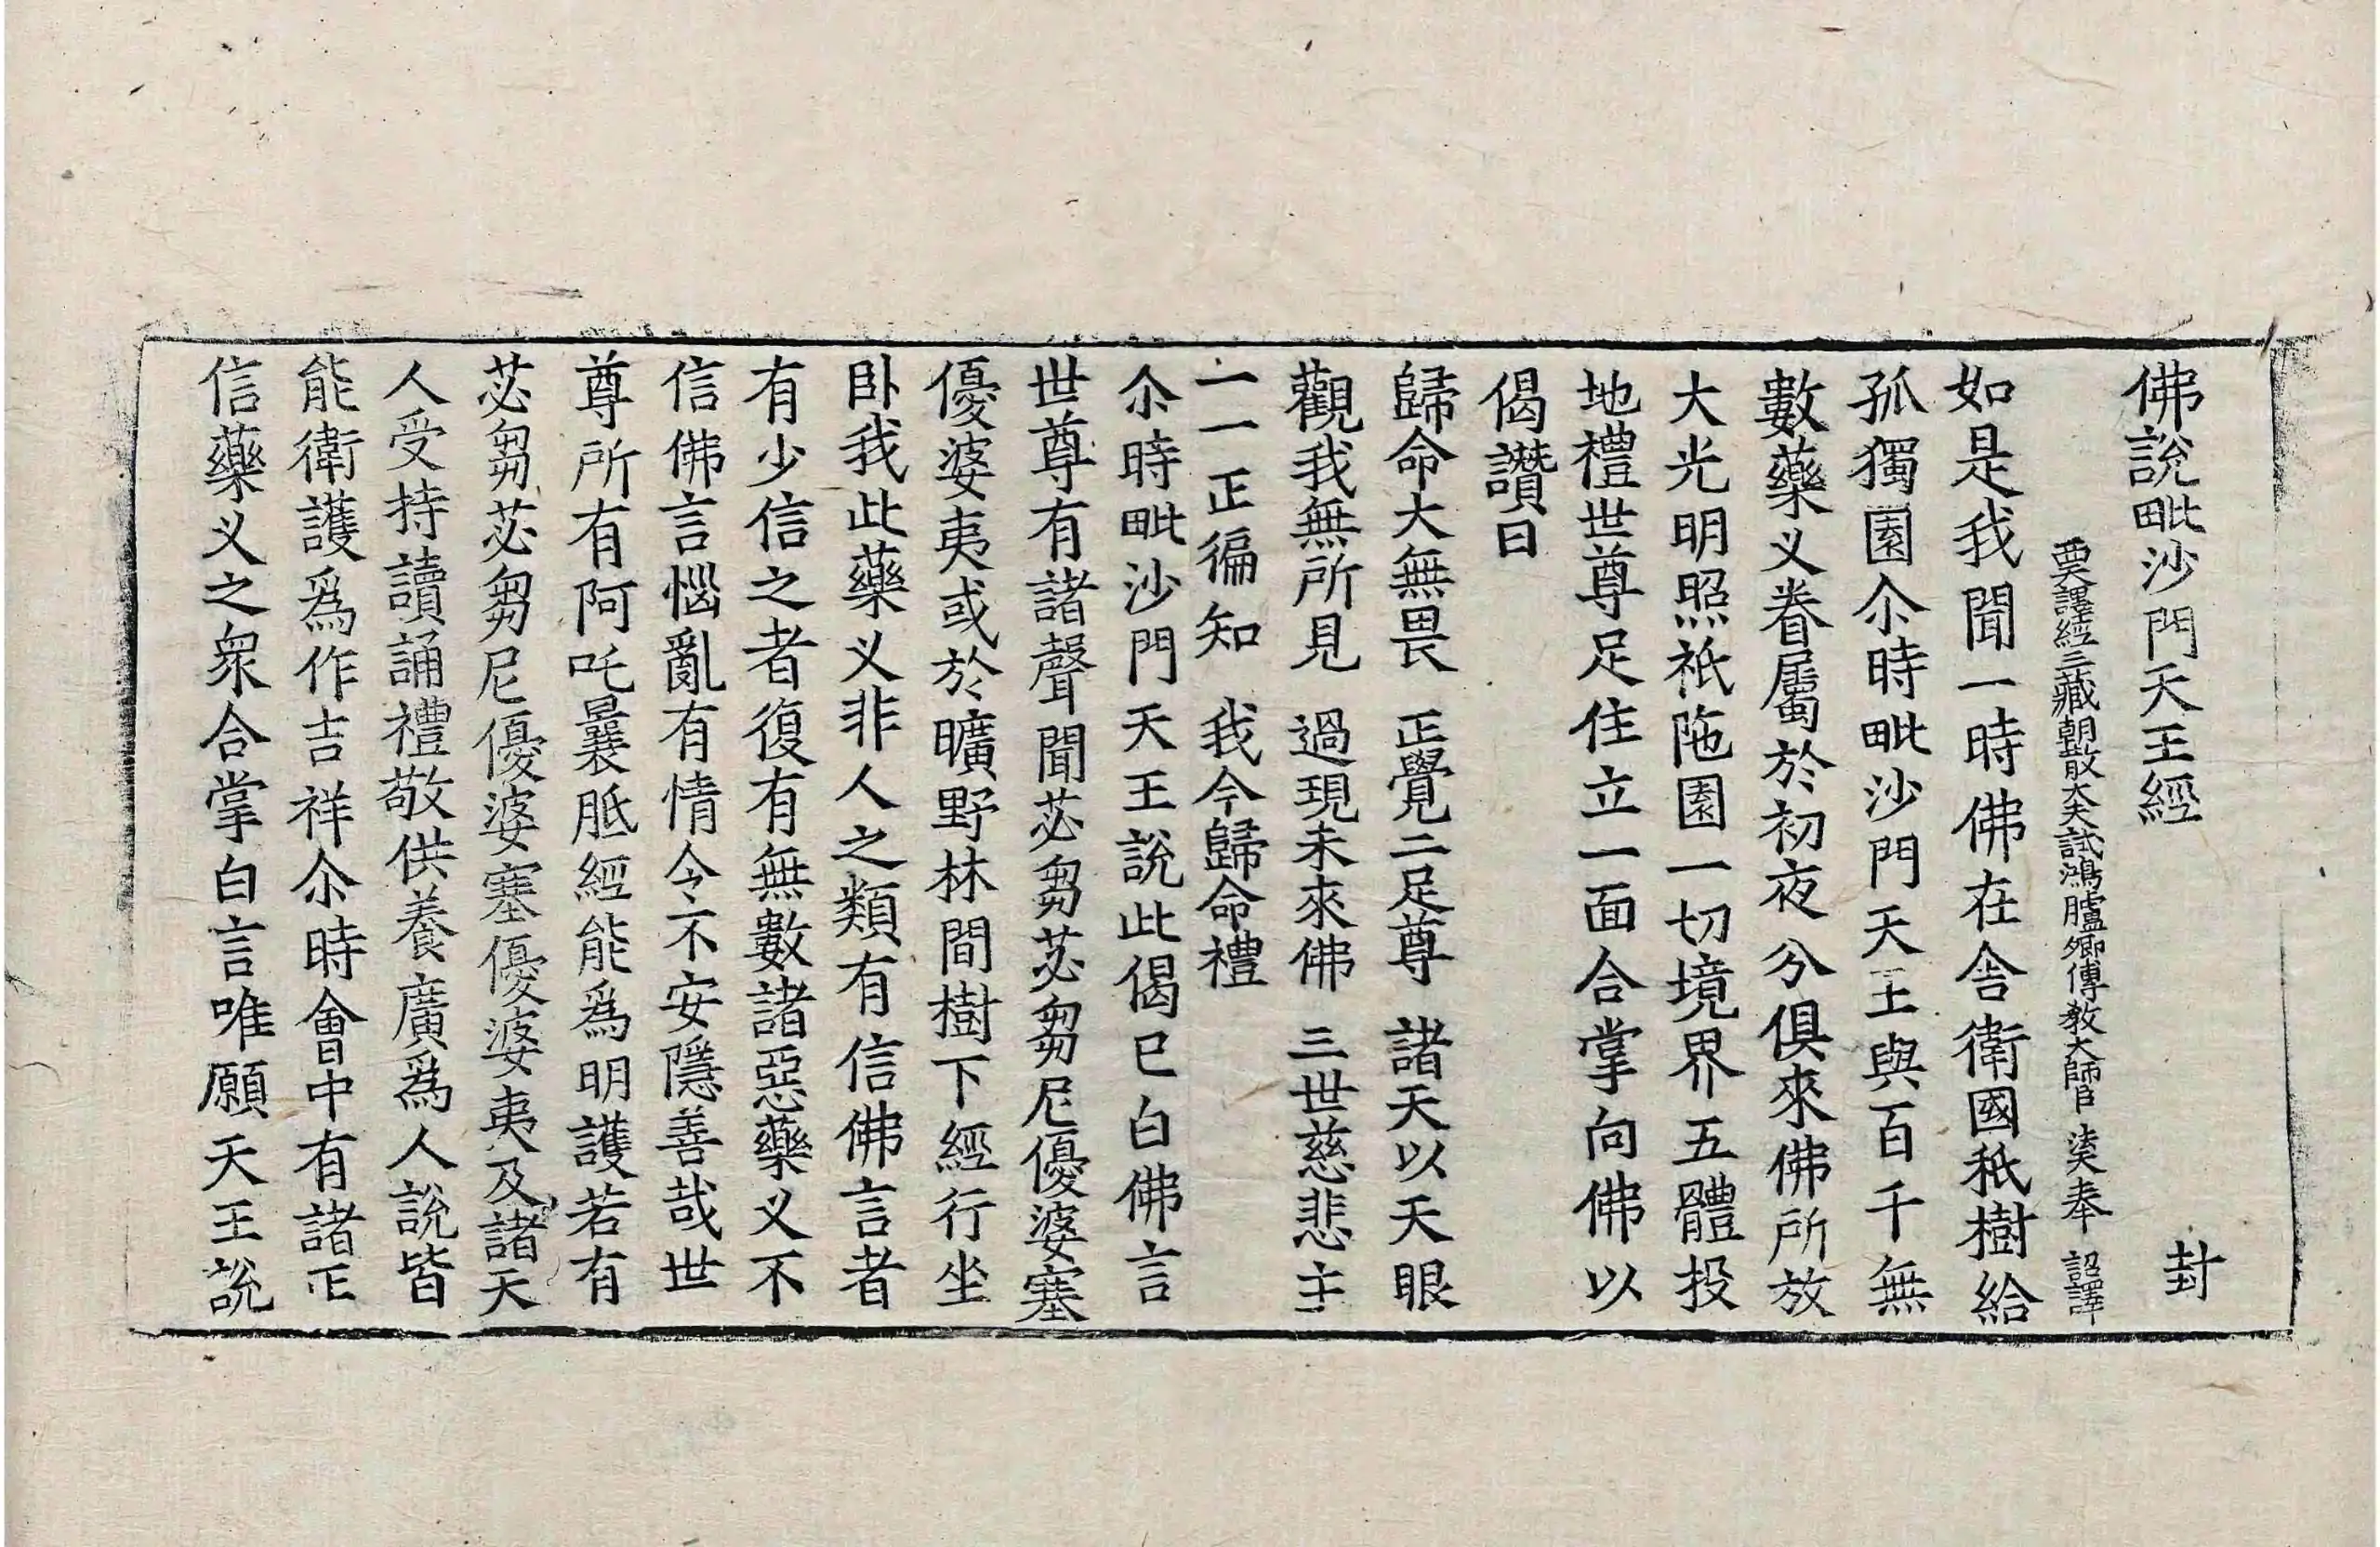 佛說毗沙門天王經 封
西天譯經三藏朝散大夫試鴻臚卿傳教大師臣法天奉 詔譯
如是我聞一時佛在舍衛國秖樹給
孤獨園尒時毗沙門天王與百千無
數藥义眷屬於初夜分俱來佛所放
大光明照祇陁園一切境界五體投
地禮世尊足住立一面合掌向佛以
偈讚曰
歸命大無畏 正覺二足尊 諸天以天眼
觀我無所見 過現未來佛 三世慈悲主
一一正徧知 我今歸命禮
尒時毗沙門天王說此偈已白佛言
世尊有諸聲聞苾芻苾芻尼優婆塞
優婆夷或於曠野林間樹下經行坐
卧我此藥义非人之類有信佛言者
有少信之者復有無數諸惡藥义不
信佛言惱亂有情令不安隱善哉世
尊所有阿吒曩胝經能爲明護若有
苾芻苾芻尼優婆塞優婆夷及諸天
人受持讀誦禮敬供養廣爲人說皆
能衛護爲作吉祥尒時會中有諸正
信藥义之衆合掌白言唯願天王說